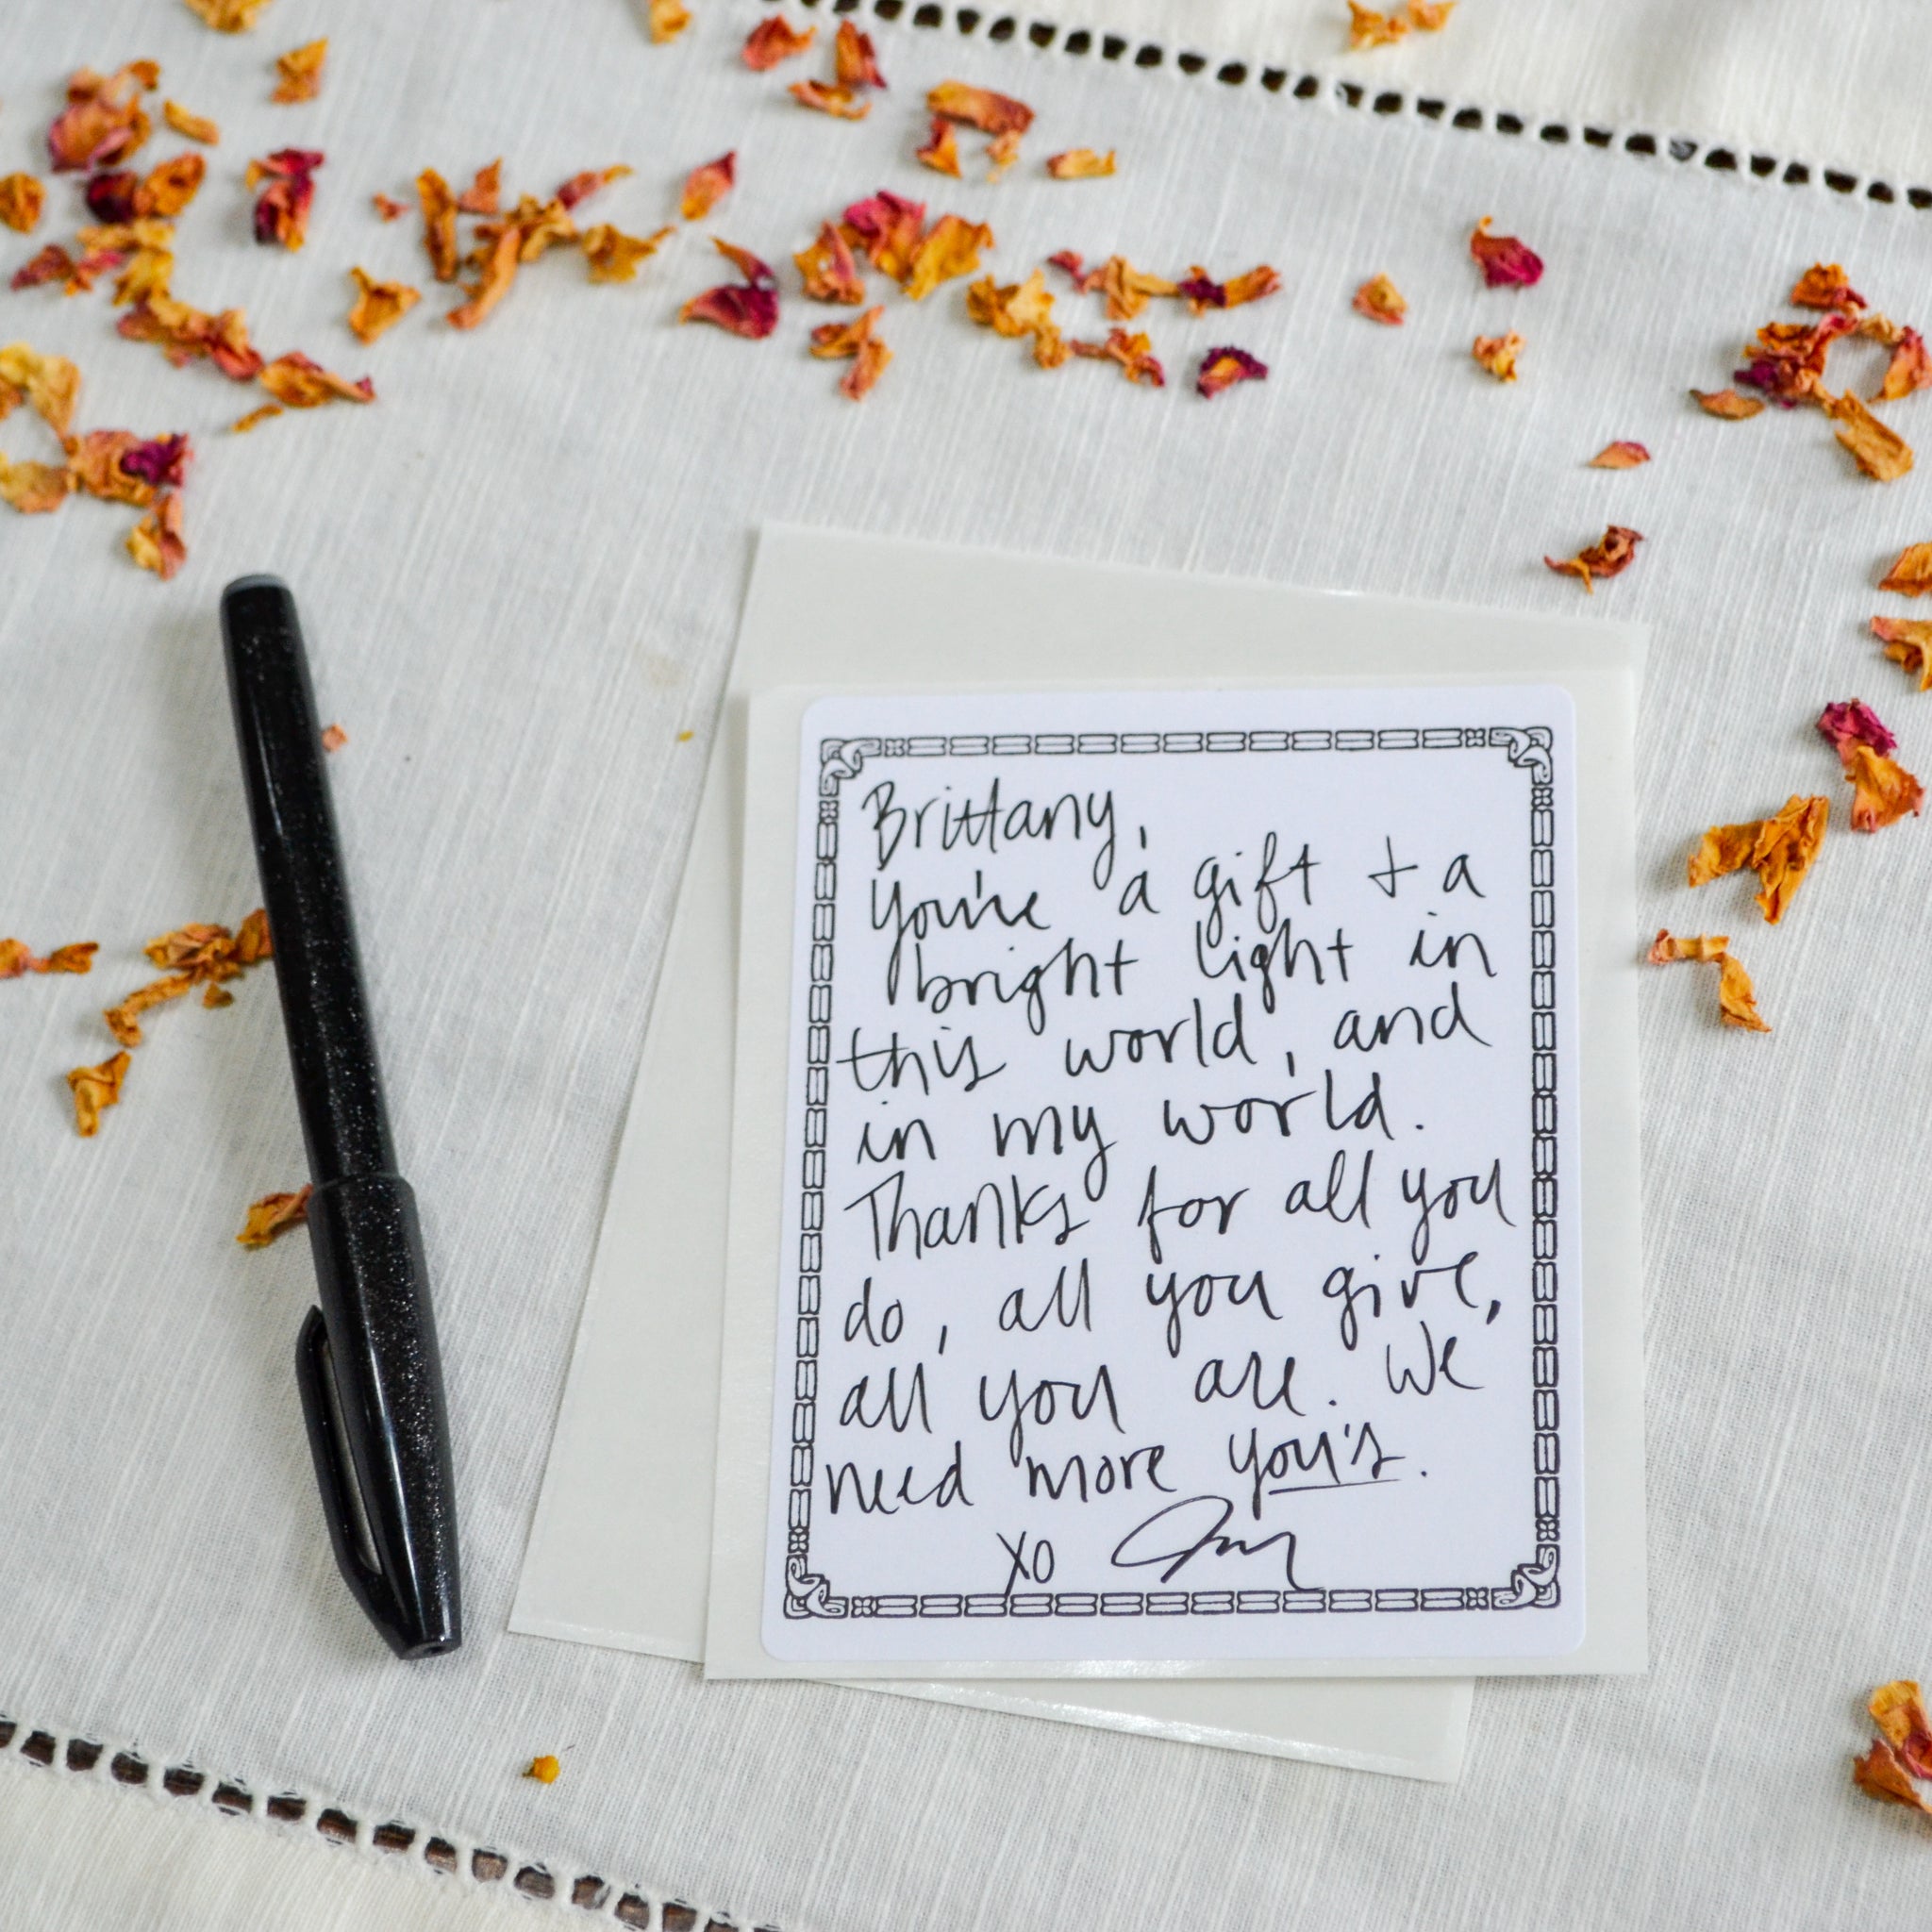 Brittany,
You're a gift + a
bright light in
this world, and
in my world.
Thanks for all you
do, all you give,
all you are. We
need more you's.
xo